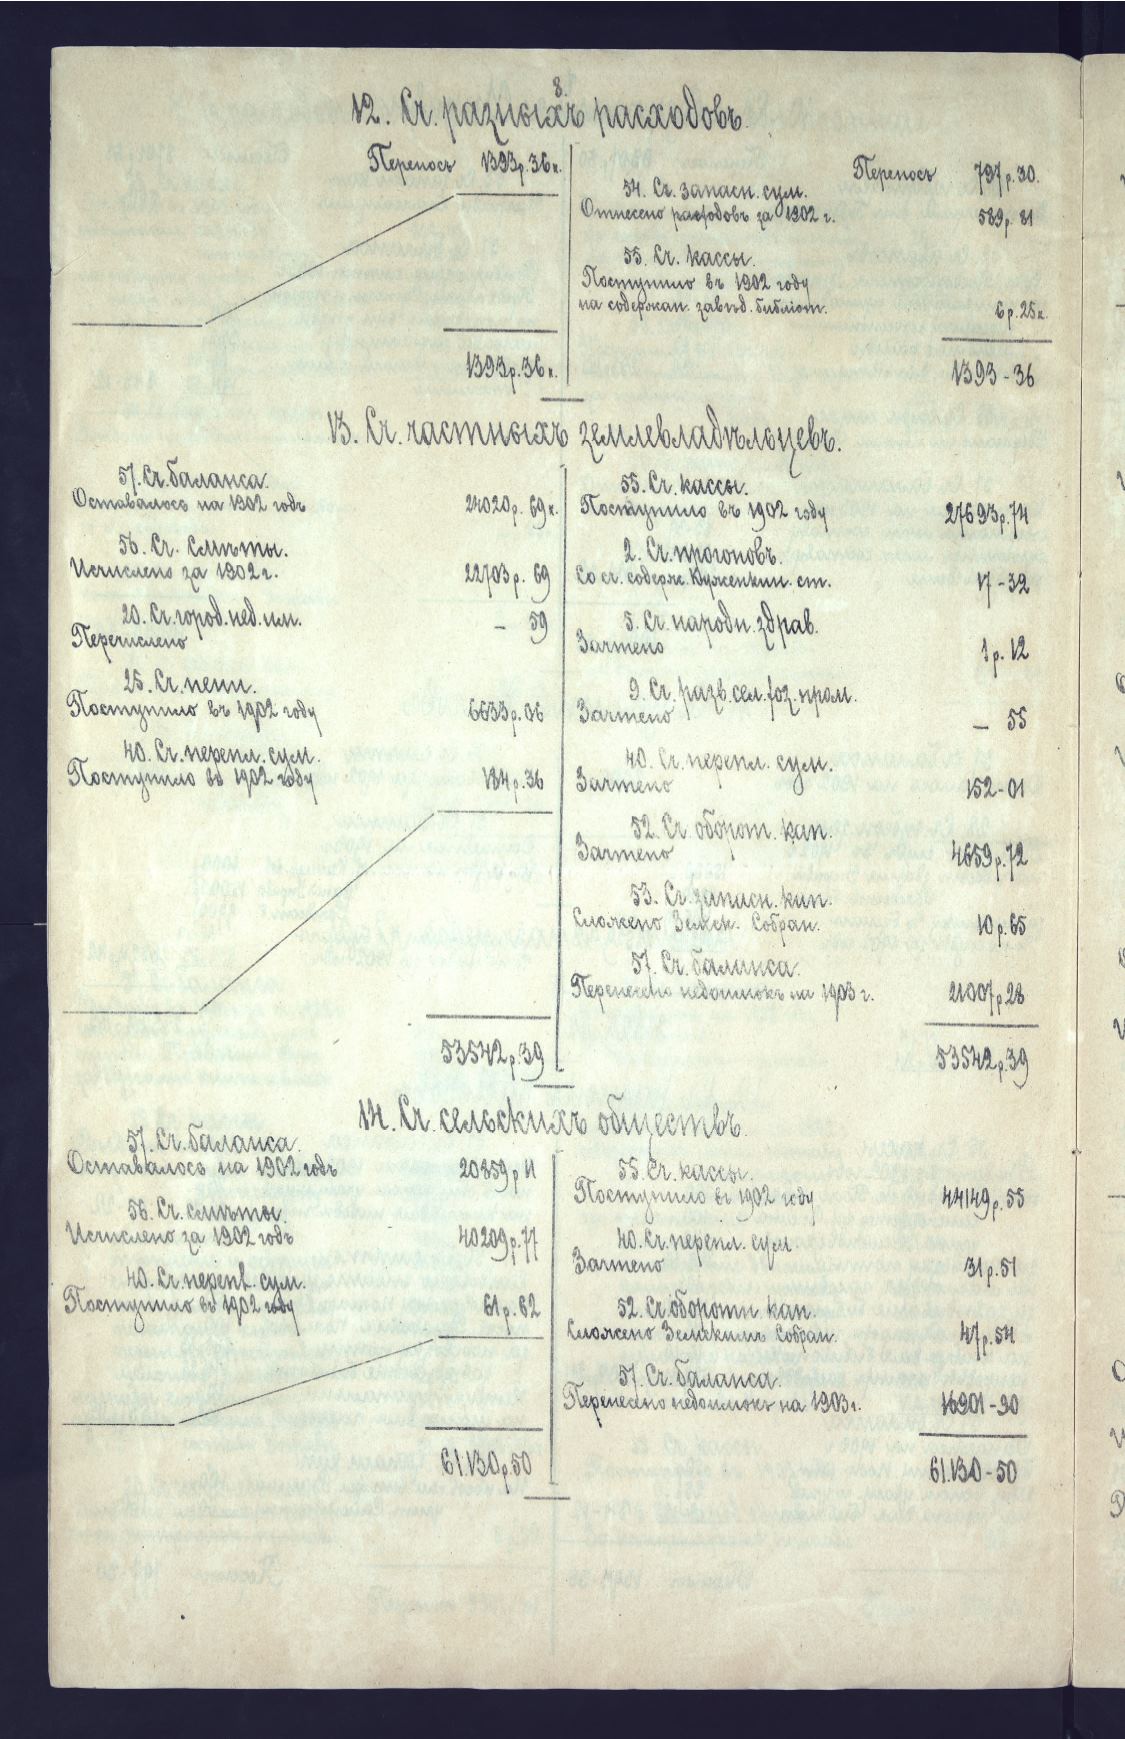 8.
12. Сч. разныхъ расходовъ.
Переносъ 1393р.36к.
1393р.36к.
Переносъ 797р.30.
54. Сч. запасн. сум.
Отнесено расходовъ за 1902 г. 589р. 81
55. Сч. кассы.
Поступило въ 1902 году
на содержан. завѣд. библіот. 6р.25к.
1393-36
13. Сч. частныхъ землевладѣльцевъ.
57. Сч. баланса.
Оставалось на 1902 годъ 24020р. 69к.
56. Сч. смѣты.
Исчислено за 1902 г. 22703р. 69
20. Сч. город. нед. им.
Перечислено – 59
25. Сч. пени.
Поступило въ 1902 году 6633р.06
40. Сч. перепл. сум.
Поступило въ 1902 году 184р.36
53542р.39
55. Сч. кассы.
Поступило въ 1902 году 27693р.74
2. Сч. прогоновъ.
Со сч. содерж. Куженкин. ст. 17-32
5. Сч. народн. здрав.
Зачтено 1р.12
9. Сч. разв. сел. хоз. пром.
Зачтено – 55
40. Сч. перепл. сум.
Зачтено 152-01
52. Сч. оборот. кап.
Зачтено 4659р.72
53. Сч. запасн. кап.
Сложено Земск. Собран. 10р.65
57. Сч. баланса.
Перенесено недоимокъ на 1903 г. 21007р.28
53542р.39
14. Сч. сельскихъ обществъ.
57. Сч. баланса.
Оставалось на 1902 годъ 20859р 11
56. Сч. смѣты.
Исчислено за 1902 годъ 40209р.77
40. Сч. перепл. сум.
Поступило въ 1902 году 61р.62
61.130р.50
55. Сч. кассы.
Поступило въ 1902 году 44149р.55
40. Сч. перепл. сум.
Зачтено 31р.51
52. Сч. оборотн. кап.
Сложено Земскимъ Собран. 47р.54
57. Сч. баланса.
Перенесено недоимокъ на 1903 г. 16901-90
61.130-50